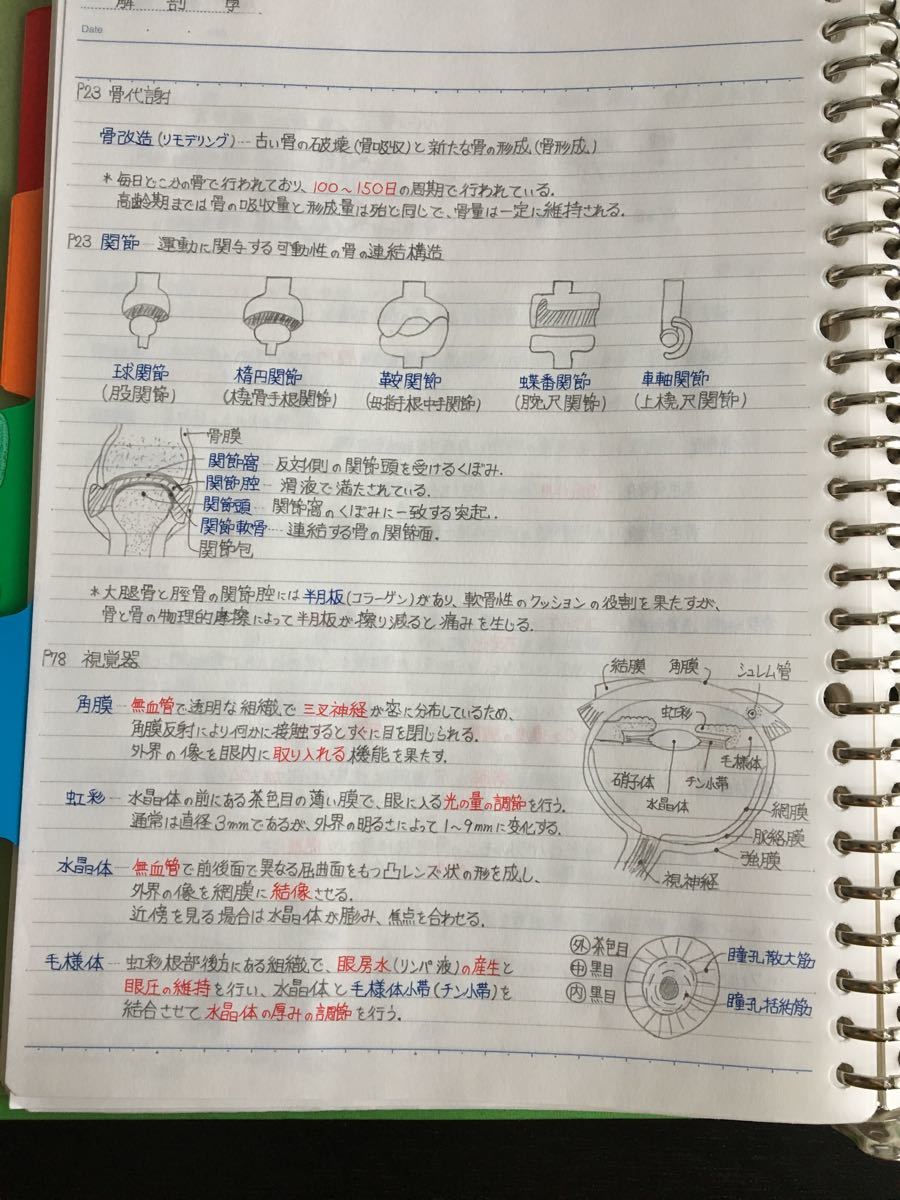 解剖学
Date
P23 骨代謝
骨改造(リモデリング)…古い骨の破壊(骨吸収)と新たな骨の形成(骨形成)
*毎日どこかの骨で行われており、100~150日の周期で行われている.
高齢期までは骨の吸収量と形成量は殆と同じで、骨量は一定に維持される.
P23 関節…運動に関与する可動性の骨の連結構造
球関節 楕円関節 鞍関節 蝶番関節 車軸関節
(股関節) (橈骨手根関節) (母指手根中手関節) (腕尺関節) (上橈尺関節)
骨膜
関節窩…反対側の関節頭を受けるくぼみ.
関節腔…滑液で満たされている.
関節頭…関節窩のくぼみに一致する突起.
関節軟骨…連結する骨の関節面.
関節包
*大腿骨と脛骨の関節腔には半月板(コラーゲン)があり、軟骨性のクッションの役割を果たすが、
骨と骨の物理的摩擦によって半月板が擦り減ると痛みを生じる.
P78 視覚器
結膜 角膜 シュレム管
虹彩
毛様体
硝子体 チン小帯
水晶体
網膜
脈絡膜
強膜
視神経
角膜…無血管で透明な組織で三叉神経が密に分布しているため、
角膜反射により何かに接触するとすぐに目を閉じられる.
外界の像を眼内に取り入れる機能を果たす.
虹彩…水晶体の前にある茶色目の薄い膜で、眼に入る光の量の調節を行う.
通常は直径3mmであるが、外界の明るさによって1~9mmに変化する.
水晶体…無血管で前後面で異なる屈曲面をもつ凸レンズ状の形を成し、
外界の像を網膜に結像させる.
近傍を見る場合は水晶体が膨み、焦点を合わせる.
毛様体…虹彩根部後方にある組織で、眼房水(リンパ液)の産生と
眼圧の維持を行い、水晶体と毛様体小帯(チン小帯)を
結合させて水晶体の厚みの調節を行う.
外 茶色目
中 黒目
内 黒目
瞳孔散大筋
瞳孔括約筋